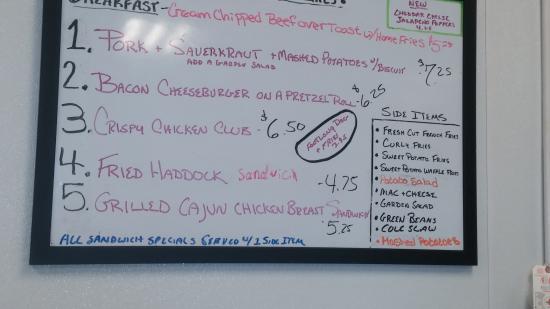 BREAKFAST - Cream Chipped Beef over Toast w/ Home Fries $5.25
NEW
CHEDDAR CHEESE
JALAPENO POPPERS
1. PORK + SAUERKRAUT + MASHED POTATOES w/ BISCUIT $7.25
ADD A GARDEN SALAD
2. BACON CHEESEBURGER ON A PRETZEL ROLL - $6.25
3. CRISPY CHICKEN CLUB - $6.50
FOOTLONG DOG
+ FRIES
4. FRIED HADDOCK Sandwich - 4.75
5. GRILLED CAJUN CHICKEN BREAST SANDWICH
5.25
ALL SANDWICH SPECIALS SERVED w/ 1 SIDE ITEM
SIDE ITEMS
• FRESH CUT FRENCH FRIES
• CURLY FRIES
• SWEET POTATO FRIES
• SWEET POTATO WAFFLE FRIES
• POTATO SALAD
• MAC + CHEESE
• GARDEN SALAD
• GREEN BEANS
• COLE SLAW
• MASHED POTATOES